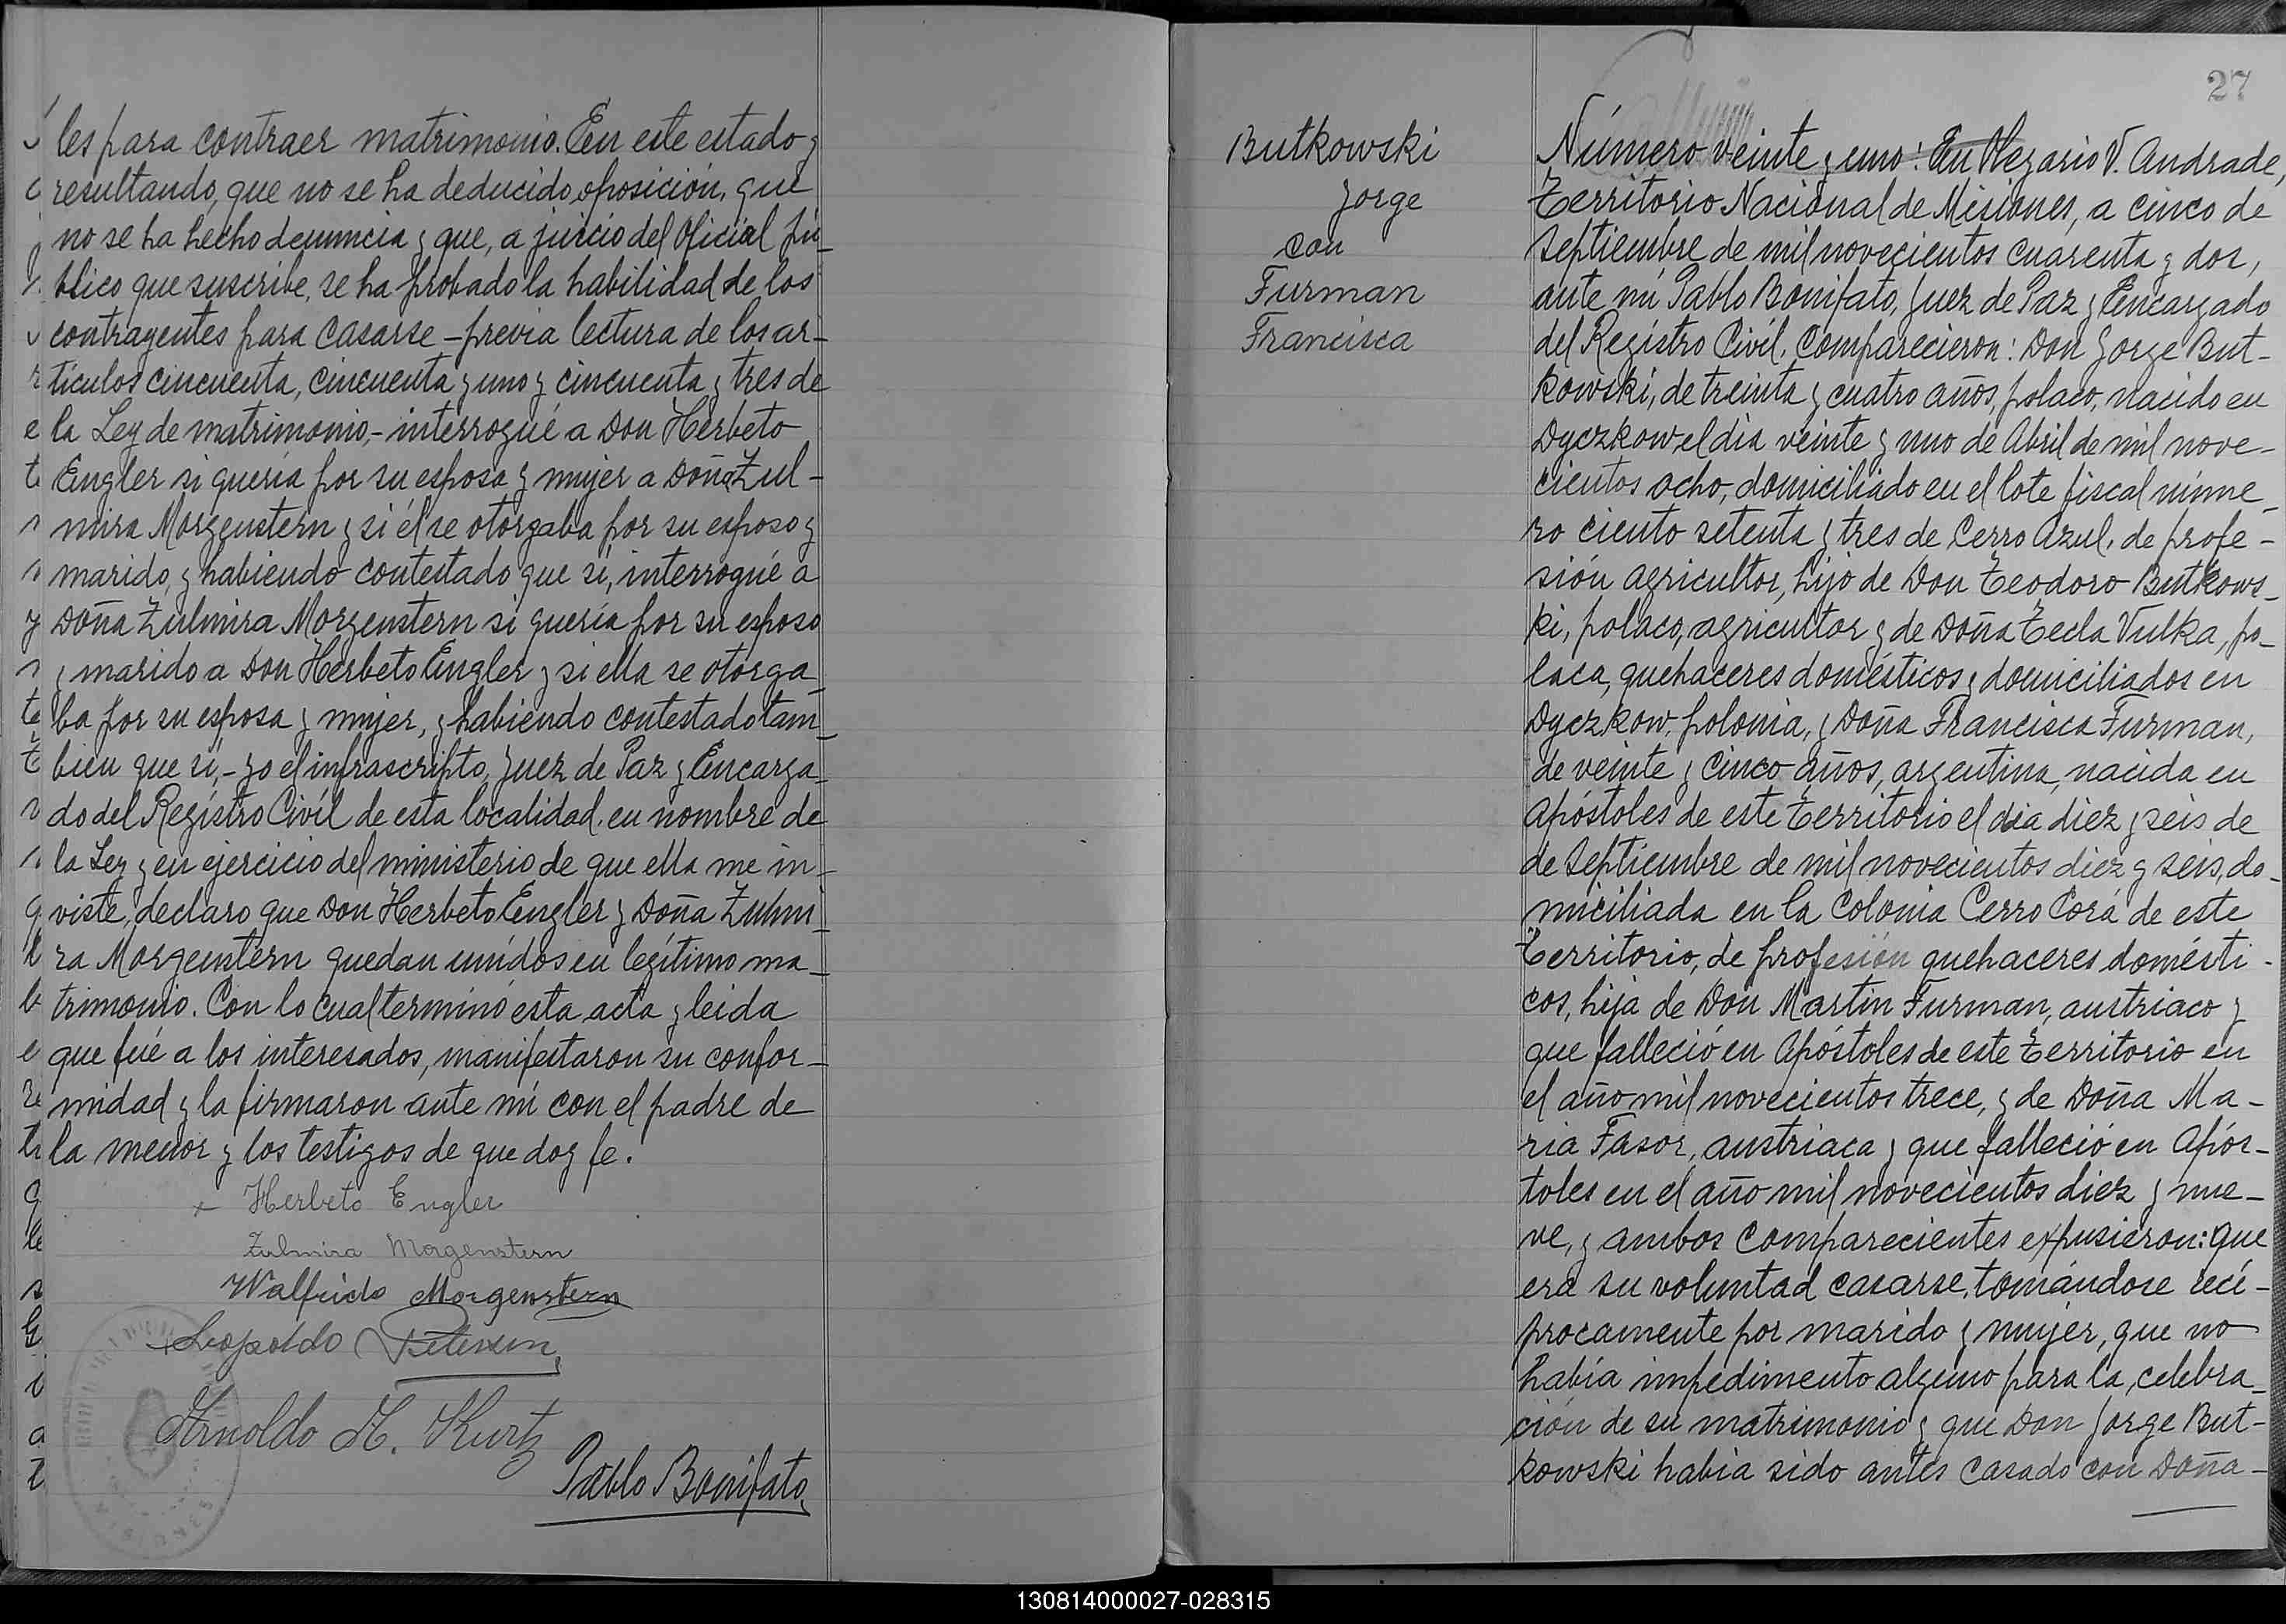 les para contraer matrimonio. En este estado y
resultando, que no se ha deducido oposición, que
no se ha hecho denuncia y que, a juicio del Oficial pú-
blico que suscribe, se ha probado la habilidad de los
contrayentes para casarse - previa lectura de los ar-
tículos cincuenta, cincuenta y uno y cincuenta y tres de
la Ley de matrimonio, - interrogué a Don Herbeto
Engler si quería por su esposa y mujer a Doña Zul-
mira Morgenstern y si él se otorgaba por su esposo y
marido, y habiendo contestado que sí, interrogué a
Doña Zulmira Morgenstern si quería por su esposo
y marido a Don Herbeto Engler y si ella se otorga-
ba por su esposa y mujer, y habiendo contestado tam-
bien que sí, - yo el infrascripto, Juez de Paz y Encarga-
do del Registro Civil de esta localidad, en nombre de
la Ley y en ejercicio del ministerio de que ella me in-
viste, declaro que Don Herbeto Engler y Doña Zulmi-
ra Morgenstern quedan unidos en legítimo ma-
trimonio. Con lo cual terminó esta acta y leida
que fué a los interesados, manifestaron su confor-
midad y la firmaron ante mí con el padre de
la menor y los testigos de que doy fe.
Herbeto Engler
Zulmira Morgenstern
Walfrido Morgenstern
Leopoldo Petersen
Arnoldo H. Kurtz
Pablo Bonifato
27
Butkowski
Jorge
con
Furman
Francisca
Número veinte y uno: En Olegario V. Andrade,
Territorio Nacional de Misiones, a cinco de
Septiembre de mil novecientos cuarenta y dos,
ante mí Pablo Bonifato, Juez de Paz y Encargado
del Registro Civil, Comparecieron: Don Jorge But-
kowski, de treinta y cuatro años, polaco, nacido en
Dyczkow el día veinte y uno de Abril de mil nove-
cientos ocho, domiciliado en el lote fiscal núme-
ro ciento setenta y tres de Cerro Azul, de profe-
sión agricultor, hijo de Don Teodoro Butkows-
ki, polaco, agricultor y de Doña Tecla Vulka, po-
laca, quehaceres domésticos y domiciliados en
Dyczkow, polonia, y Doña Francisca Furman,
de veinte y cinco años, argentina, nacida en
Apóstoles de este Territorio el día diez y seis de
de Septiembre de mil novecientos diez y seis, do-
miciliada en la Colonia Cerro Corá de este
Territorio, de profesión quehaceres domésti-
cos, hija de Don Martin Furman, austriaco y
que falleció en Apóstoles de este Territorio en
el año mil novecientos trece, y de Doña Ma-
ria Fasor, austriaca y que falleció en Após-
toles en el año mil novecientos diez y nue-
ve, y ambos comparecientes expusieron: que
era su voluntad casarse, tomándose recí-
procamente por marido y mujer, que no
había impedimento alguno para la celebra-
ción de su matrimonio y que Don Jorge But-
kowski había sido antes casado con Doña-
130814000027-028315